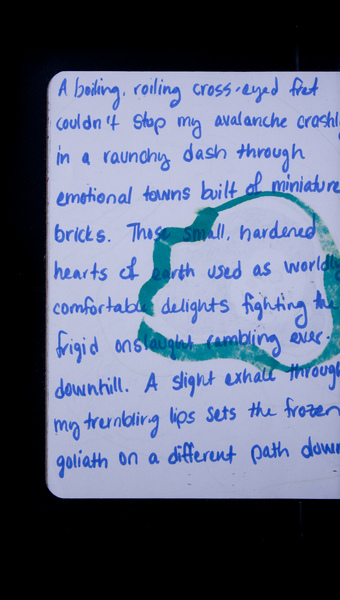 A boiling, roiling cross-eyed fret
couldn't stop my avalanche crashi
in a raunchy dash through
emotional towns built of miniature
bricks. Those small, hardened
hearts of earth used as worldly
comfortable delights fighting the
frigid onslaught rambling ever
downhill. A slight exhale through
my trembling lips sets the frozen
goliath on a different path down